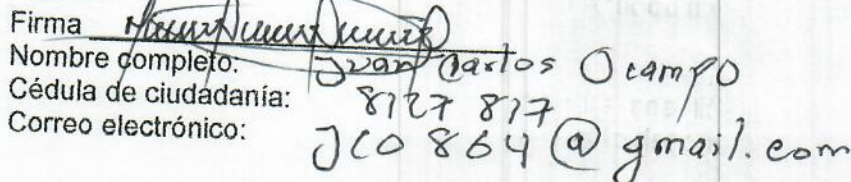 Firma
Nombre completo: Juan Carlos Ocampo
Cédula de ciudadanía: 8127 817
Correo electrónico: JCO864@gmail.com